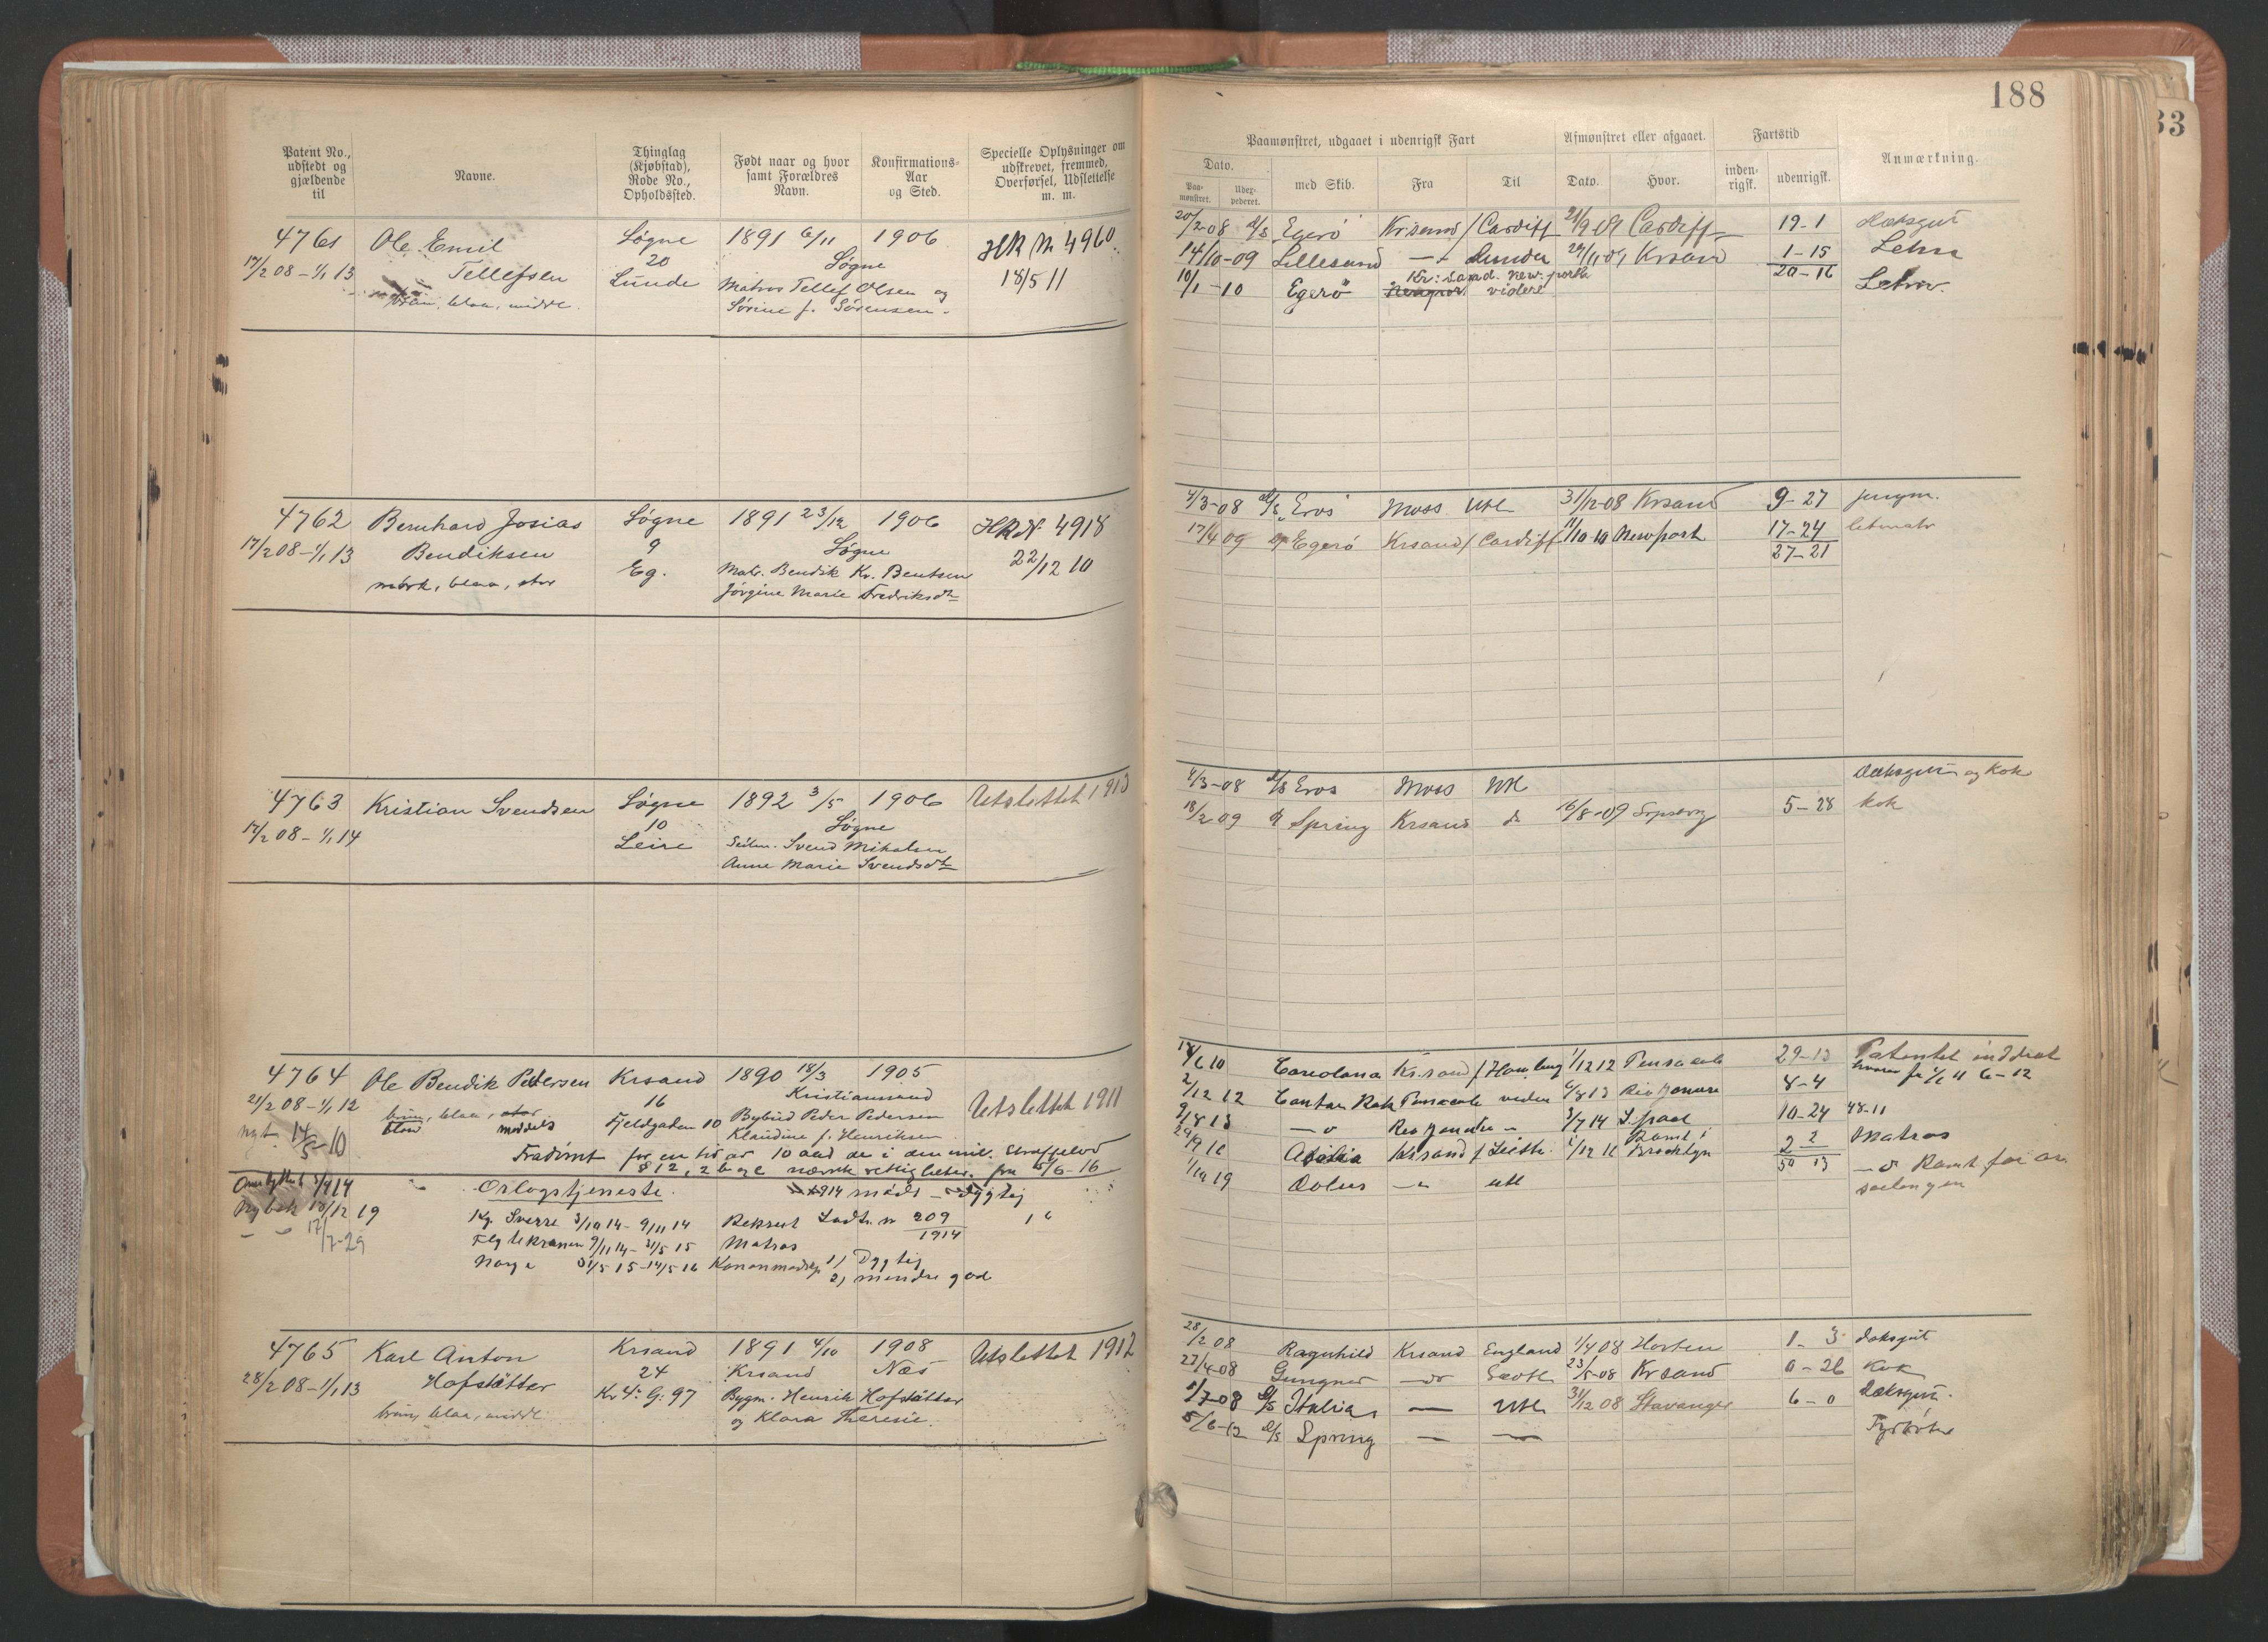 188
33
Patent No., udstedt og gjældende til
Navne.
Thinglag (Kjøbstad), Rode No., Opholdssted.
Født naar og hvor samt Forældres Navn.
Konfirmations-Aar og Sted.
Specielle Oplysninger om udskrevet, fremmed, Overførsel, Udslettelse m. m.
Paamønstret, udgaaet i udenrigsk Fart
Afmønstret eller afgaaet.
Fartstid
Anmærkning.
Dato.
Paamønstret.
med Skib.
Fra
Til
Dato.
Hvor.
indenrigsk.
udenrigsk.
4761 Ole Emil Søgne 1891 6/11 1906 HR No 4960
17/2 08 - 1/1 13 Tellefsen 20 Søgne 18/5 11
blaa, middl. Lunde Matros Tellef Olsen og
Sørine f. Sørensen.
20/2-08 d/s Egerø Kr.sand / Cardiff 21/9 09 Cardiff 19-1 Dæksgut
14/10-09 Lillesand Krsand 1-15 Letm
20-16
10/1-10 Egerø Kr: sand. New-port videre Letm.
4762 Bernhard Josias Søgne 1891 23/12 1906 HR No 4918
17/2 08 - 1/1 13 Bendiksen 9 Søgne 22/12 10
mørk, blaa, stor Eg. Matr. Bendik Kr. Bentsen
Jørgine Marie Fredriksdt
4/3-08 d/s Eros Moss Utl 31/12-08 Krsand 9-27 jungm.
17/4 09 Egerø Krsand / Cardiff 11/10-10 Newport 17-24 letmatr
27-21
4763 Kristian Svendsen Søgne 1892 3/5 1906 Utslettet 1913
17/2 08 - 1/1 14 10 Søgne
Leire Svend Mikalsen
Anne Marie Svendsdt
4/3-08 d/s Eros Moss Utl Dæksgut og Kok
18/2 09 Spring Krsand 16/8-09 5-28 kok
4764 Ole Bendik Pedersen Krsand 1890 18/3 1905
21/2 08 - 1/1 12 16 Kristianssand Utslettet 1911
blaa, stor middels Fjeldgaden 10 Bybud Peder Pedersen
Nyt. 14/5-10 Klaudine f. Henriksen
Fradømt for en tid av 10 aar de i den mil. Straffelov
§ 12, 2 nævnte rettigheter. fra 15/6-16
Orlogstjeneste. 1914 mødt Dygtig
Nybok 18/12 19
17/7-29
Sverre 3/10 14 - 9/11 14 Rekrut 209 1914
9/11 14 - 31/5 15 Matros
Norge 31/5 15 - 14/5 16 1) Dygtig
2) mindre god
18/6 10 Coreolana Kr.sand / Hamburg 1/12 12 Pensacola 29-13 Patentet inddrat
2/12 12 Pensacola 6/8 13 Rio Janeiro 8-4
9/8 13 Rio Janeiro 3/7 14 10-24 48-11
Krsand / Leith 1/12 16 Brooklyn 2 2 Matros
50 13
1/10 19 utl
4765 Karl Anton Krsand 1891 4/10 1908 Utslettet 1912
28/2 08 - 1/1 13 Hofstätter 24 Krsand Næs
brun, blaa, middl. Kr 4: G: 97 Bygm. Henrik Hofstätter
og Klara Theresie.
28/2 08 Ragnhild Krsand England 1/4 08 Horten 1-3 daksgut
27/4-08 Gungner 23/5-08 Krsand 0-26 Kok
1/7-08 d/s Italia Utl 31/12 08 Stavanger 6-0 Dæksgut.
5/6-12 d/s Spring Fyrbøter